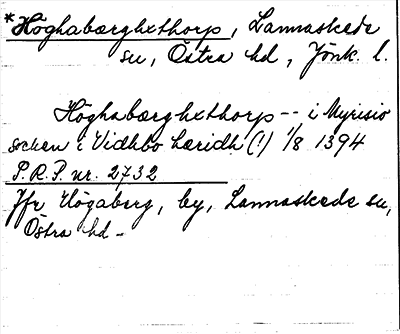 *Höghabærghxthorp, Lannaskede
su, Östra hd, Jönk. l.
Höghabærghxthorp -- i Myrisio
socken i Vidhbo hæridh (!) 1/8 1394
P.R.P. nr. 2732
Jfr Högaberg, by, Lannaskede su,
Östra hd -